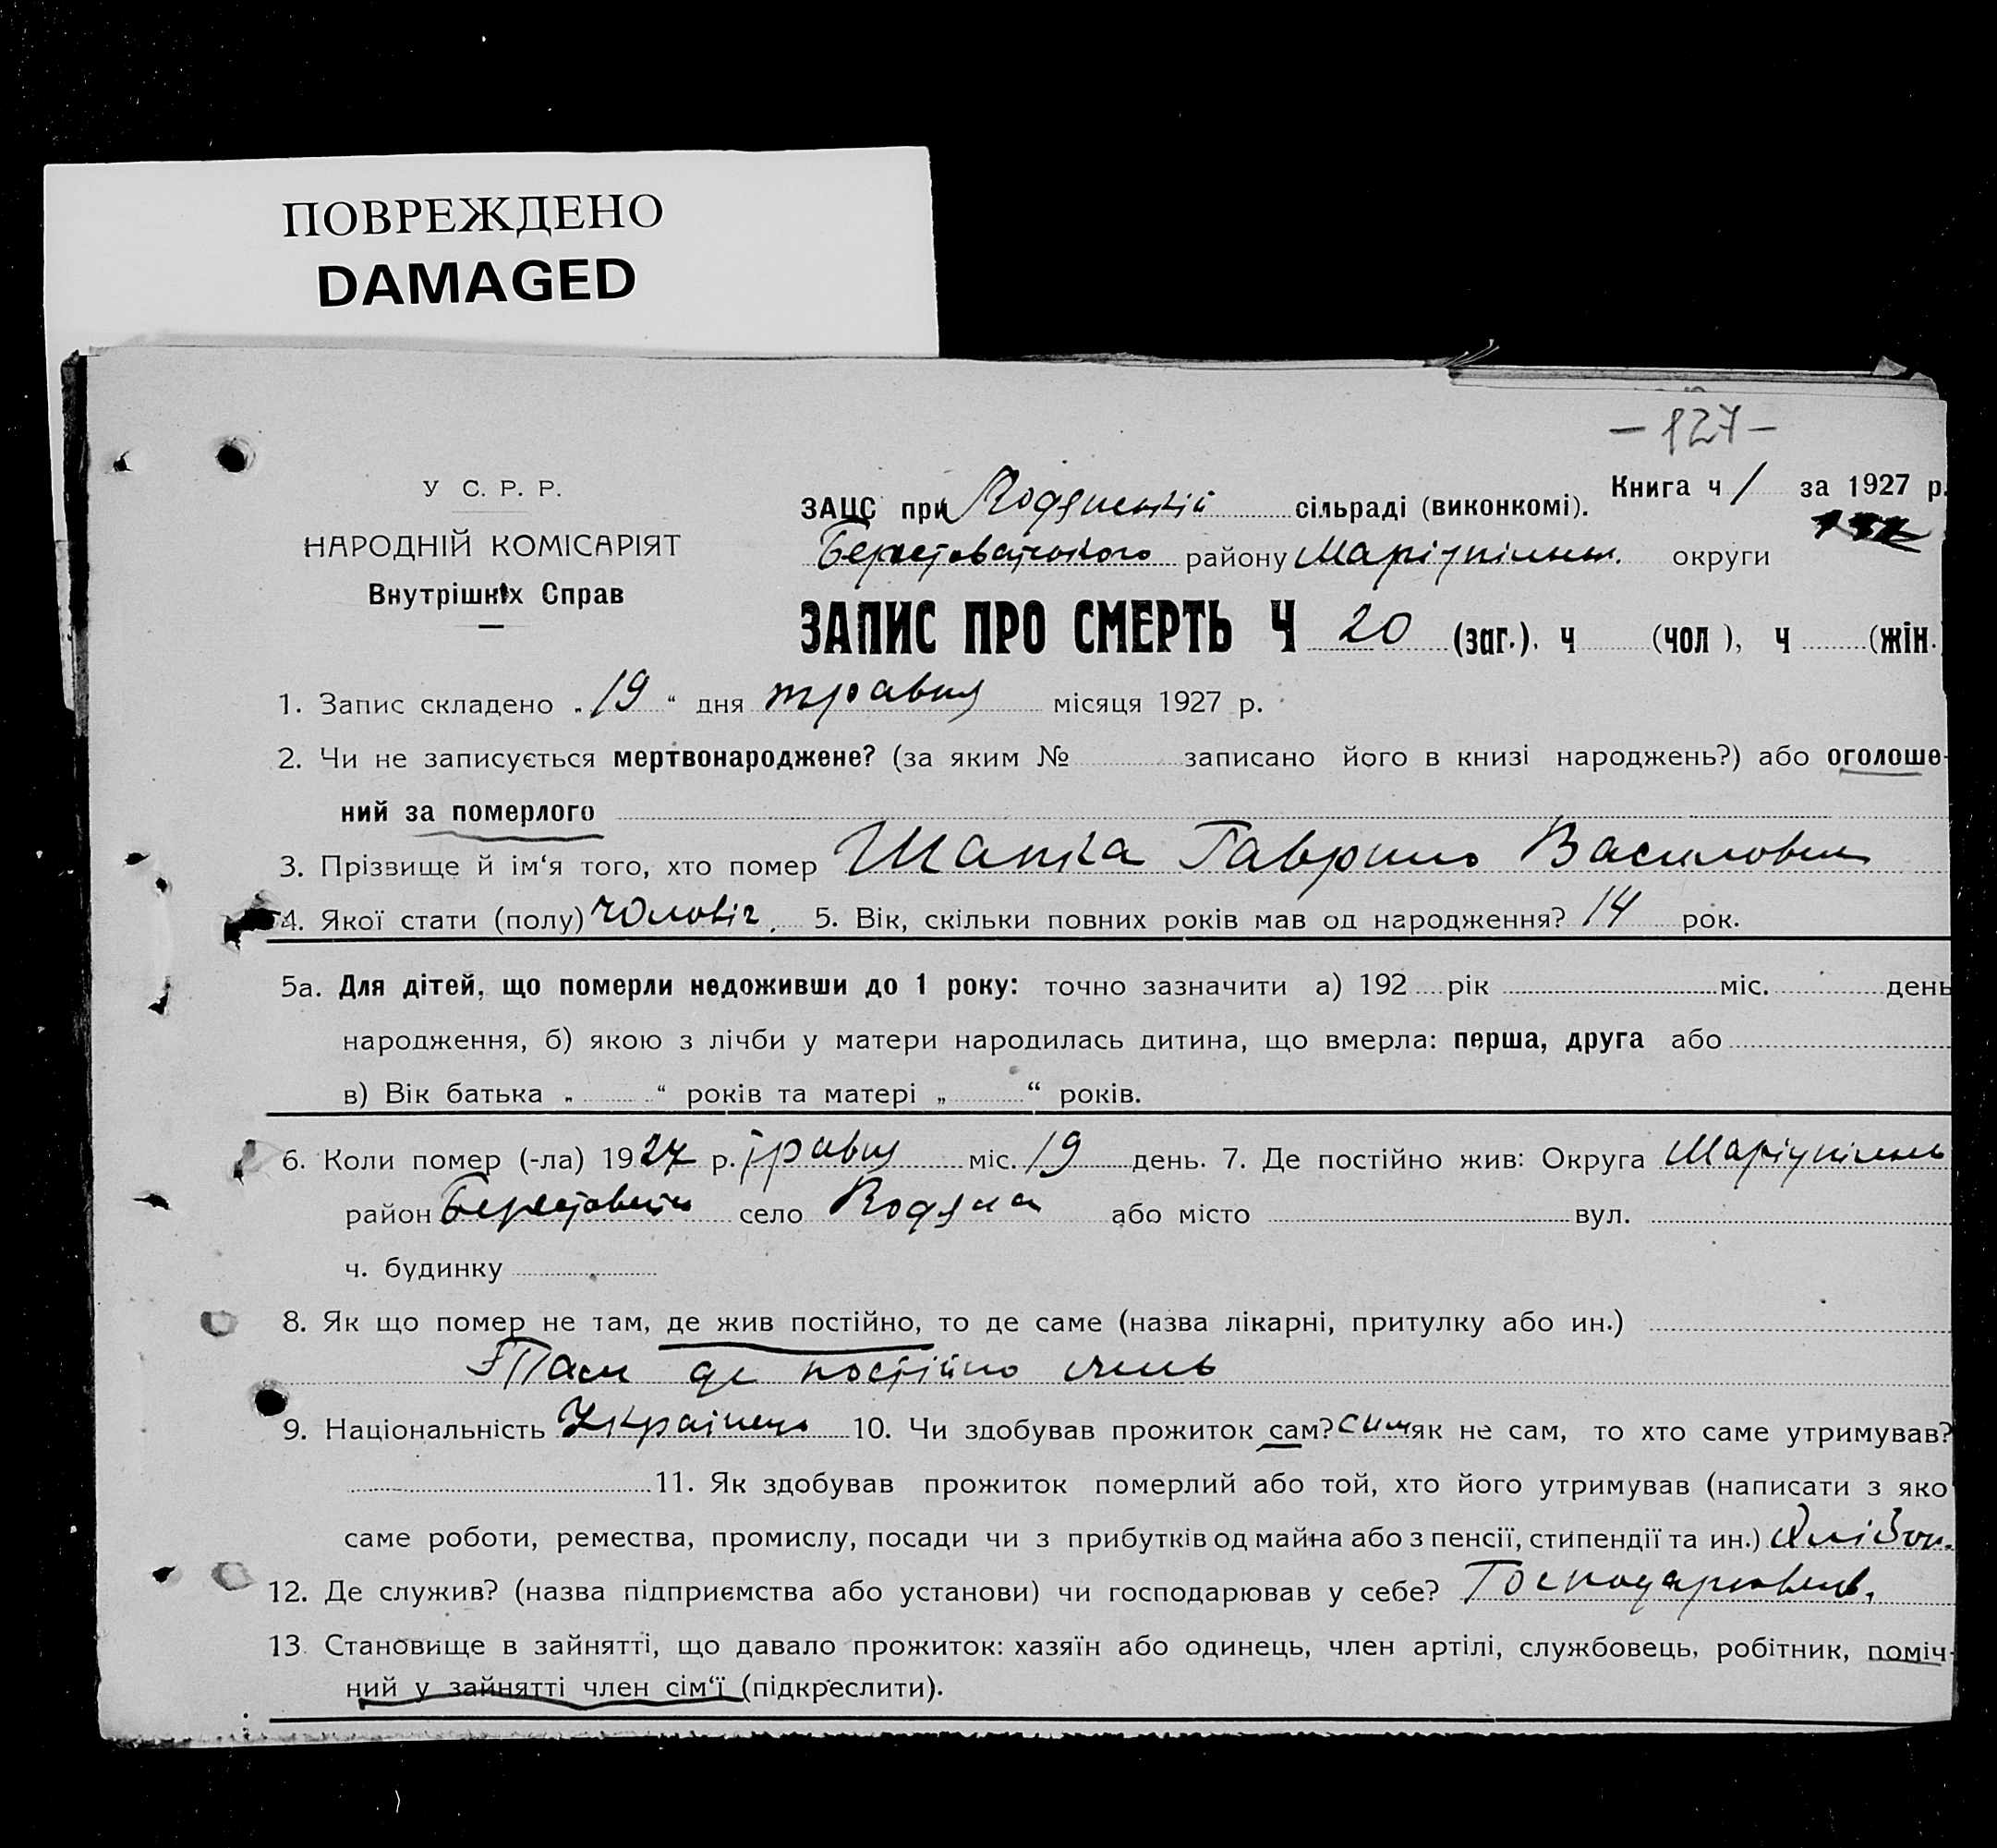 ПОВРЕЖДЕНО
DAMAGED
– 127 –
У С. Р. Р.
НАРОДНІЙ КОМІСАРІЯТ
Внутрішніх Справ
Книга ч 1 за 1927 р.
ЗАЦС при сільраді (виконкомі).
району Маріупільськ. округи
ЗАПИС ПРО СМЕРТЬ Ч 20 (заг.). ч (чол ), ч (жін.)
1. Запис складено „ 19 “ дня травня місяця 1927 р.
2. Чи не записується мертвонароджене? (за яким № записано його в книзі народжень?) або оголоше-
ний за померлого
3. Прізвище й ім‘я того, хто помер Шапка Гаврило Васильович
4. Якої стати (полу) чоловіч. 5. Вік, скільки повних років мав од народження? 14 рок.
5а. Для дітей, що померли недоживши до 1 року: точно зазначити а) 192 рік міс. день
народження, б) якою з лічби у матери народилась дитина, що вмерла: перша, друга або
в) Вік батька „ “ років та матері „ “ років.
6. Коли помер (-ла) 1927 р. травня міс. 19 день. 7. Де постійно жив: Округа Маріупільськ
район село або місто вул.
ч. будинку
8. Як що помер не там, де жив постійно, то де саме (назва лікарні, притулку або ин.)
Там де постійно
9. Національність Українець 10. Чи здобував прожиток сам? сам як не сам, то хто саме утримував?
11. Як здобував прожиток померлий або той, хто його утримував (написати з яко
саме роботи, ремества, промислу, посади чи з прибутків од майна або з пенсії, стипендії та ин.)
12. Де служив? (назва підприємства або установи) чи господарював у себе?
13. Становище в зайнятті, що давало прожиток: хазяїн або одинець, член артілі, службовець, робітник, поміч-
ний у зайнятті член сім‘ї (підкреслити).